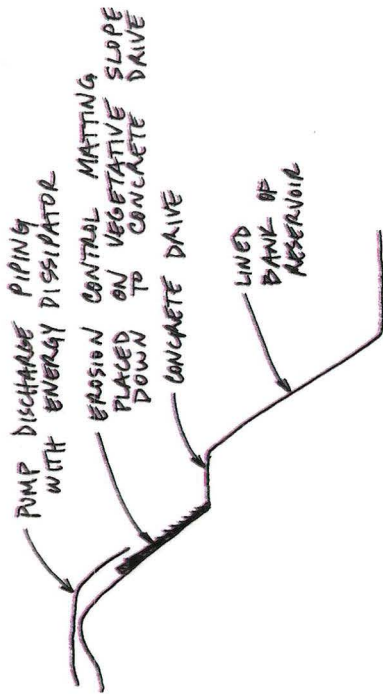 PUMP DISCHARGE PIPING
WITH ENERGY DISSIPATOR
EROSION CONTROL MATTING
PLACED ON VEGETATIVE SLOPE
DOWN TO CONCRETE DRIVE
CONCRETE DRIVE
LINED
BANK OF
RESERVOIR